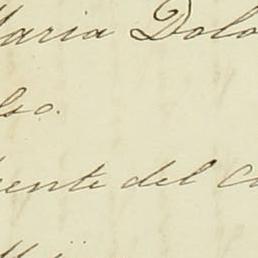 Maria Dolo
lso.
ente del C